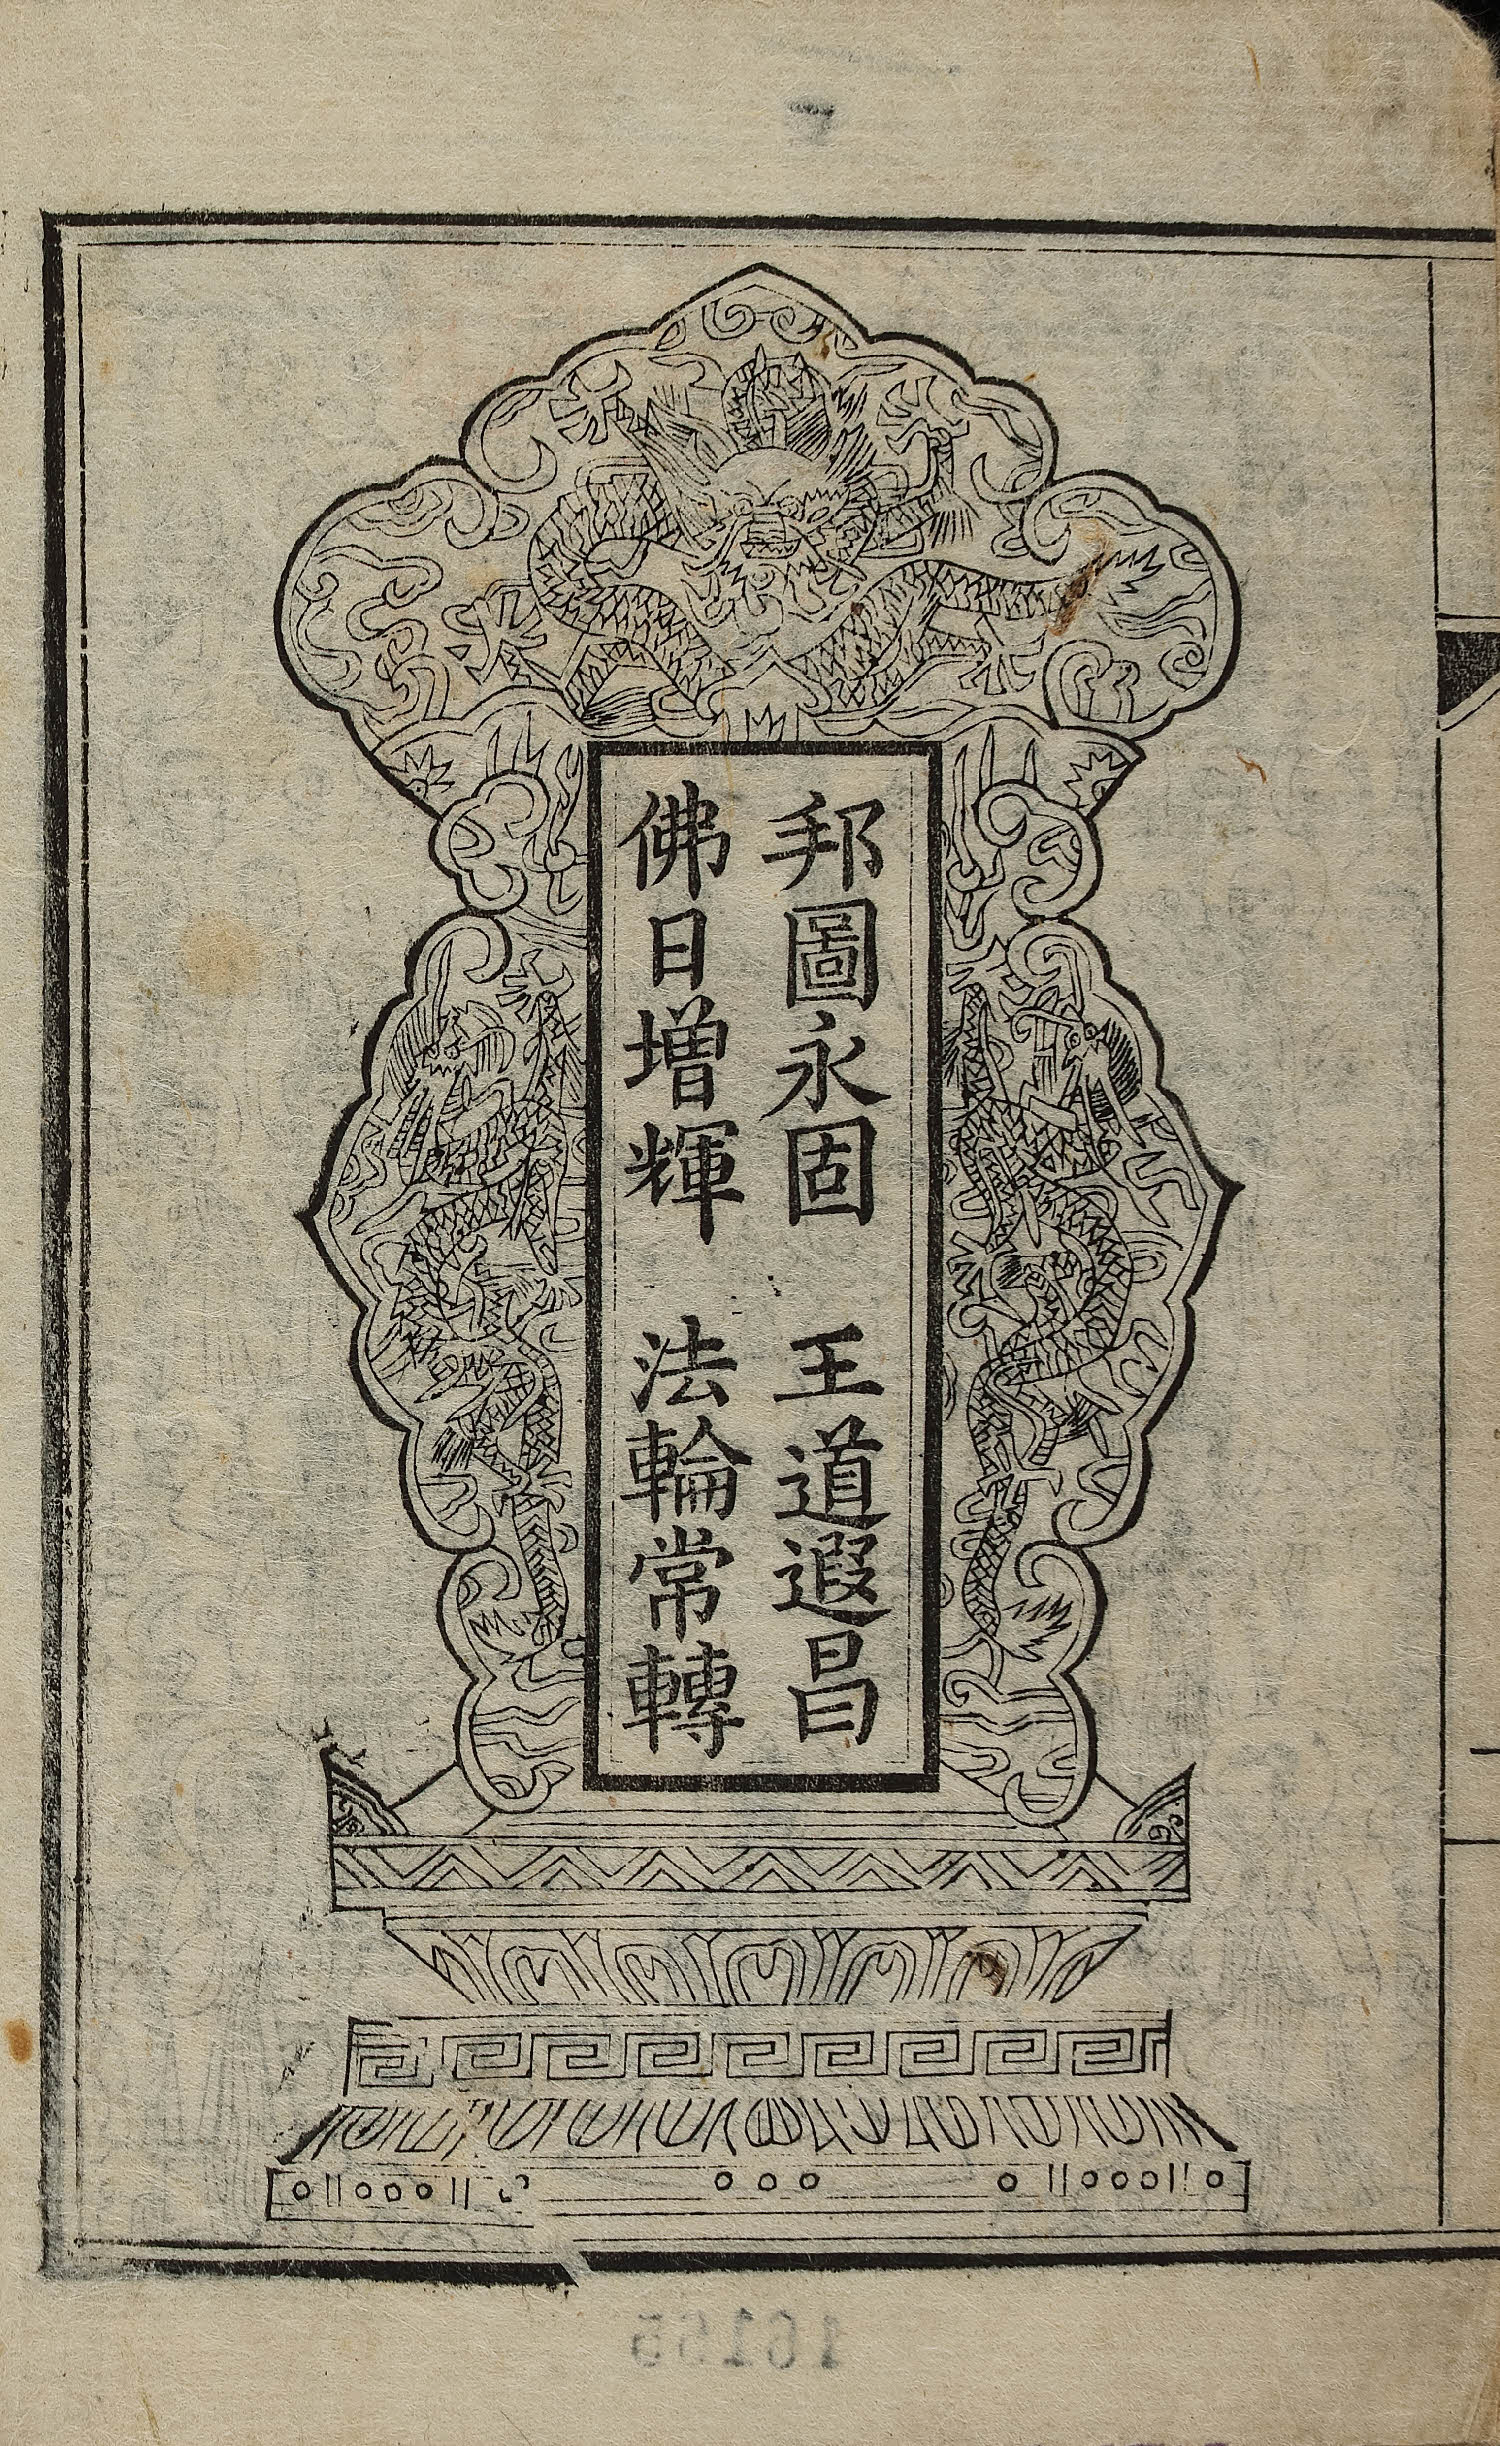 邦圖永固　王道遐昌
佛日增輝　法輪常轉